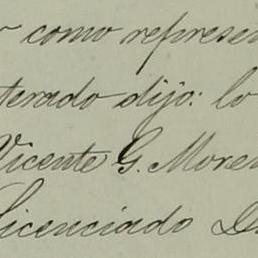 como represen
terado dijo: lo
Vicente G. More
Licenciado D